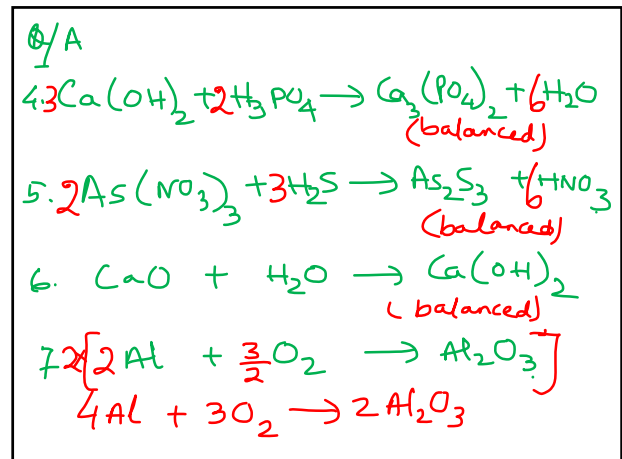 Q/A
4. 3Ca(OH)₂ + 2H₃PO₄ → Ca₃(PO₄)₂ + 6H₂O
(balanced)
5. 2As(NO₃)₃ + 3H₂S → As₂S₃ + 6HNO₃
(balanced)
6. CaO + H₂O → Ca(OH)₂
(balanced)
7. 2×[2Al + 3/2 O₂ → Al₂O₃]
4Al + 3O₂ → 2Al₂O₃